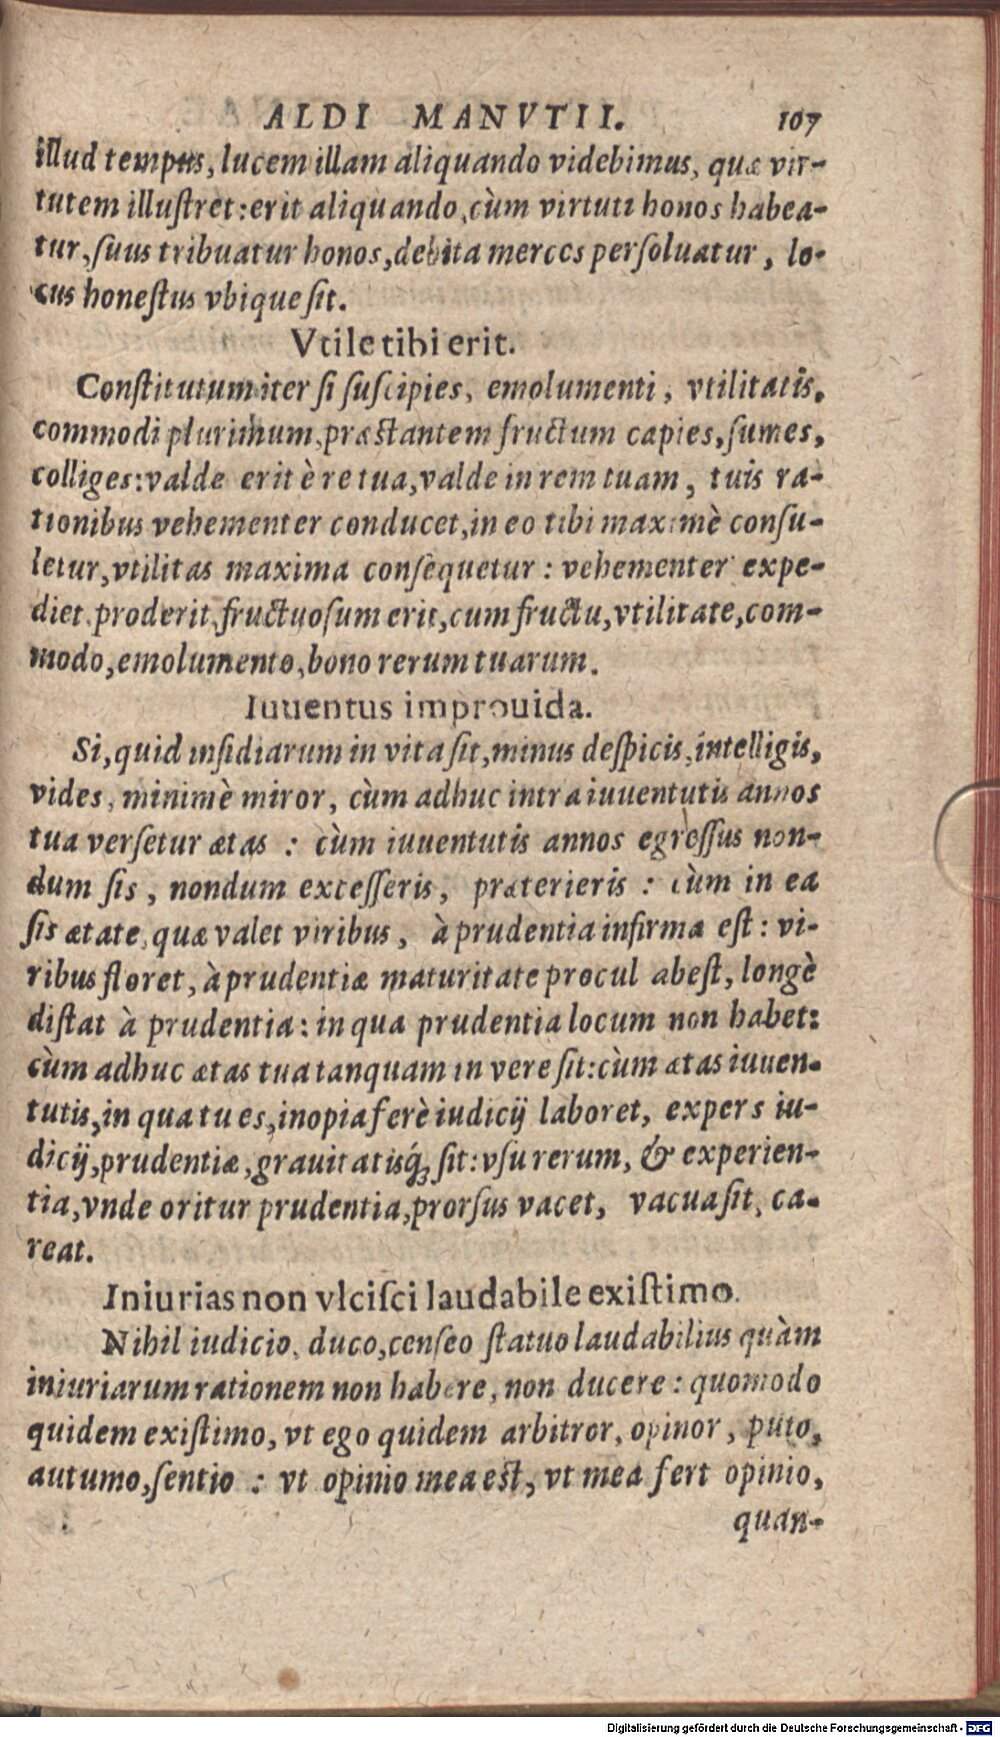 ALDI MANVTII. 107
illud tempus, lucem illam aliquando videbimus, quæ vir-
tutem illuſtret: erit aliquando, cùm virtuti honos habea-
tur, ſuus tribuatur honos, debita merces perſoluatur, lo-
cus honeſtus vbique ſit.
Vtile tibi erit.
Conſtitutum iter ſi ſuſcipies, emolumenti, vtilitatis,
commodi plurimum, præſtantem fructum capies, ſumes,
colliges: valde erit è re tua, valde in rem tuam, tuis ra-
tionibus vehementer conducet, in eo tibi maximè conſu-
letur, vtilitas maxima conſequetur: vehementer expe-
diet, proderit, fructuoſum erit, cum fructu, vtilitate, com-
modo, emolumento, bono rerum tuarum.
Iuuentus improuida.
Si, quid inſidiarum in vita ſit, minus deſpicis, intelligis,
vides, minimè miror, cùm adhuc intra iuuentutis annos
tua verſetur ætas: cùm iuuentutis annos egreſſus non-
dum ſis, nondum exceſſeris, præterieris: cùm in ea
ſis ætate, quæ valet viribus, à prudentia infirma eſt: vi-
ribus floret, à prudentiæ maturitate procul abeſt, longè
diſtat à prudentia: in qua prudentia locum non habet:
cùm adhuc ætas tua tanquam in vere ſit: cùm ætas iuuen-
tutis, in qua tu es, inopia ferè iudicij laboret, expers iu-
dicij, prudentiæ, grauitatisq́; ſit: vſu rerum, & experien-
tia, vnde oritur prudentia, prorſus vacet, vacua ſit, ca-
reat.
Iniurias non vlciſci laudabile exiſtimo.
Nihil iudicio, duco, cenſeo ſtatuo laudabilius quàm
iniuriarum rationem non habere, non ducere: quomodo
quidem exiſtimo, vt ego quidem arbitror, opinor, puto,
autumo, ſentio: vt opinio mea eſt, vt mea fert opinio,
quan-
Digitalisierung gefördert durch die Deutsche Forschungsgemeinschaft - DFG